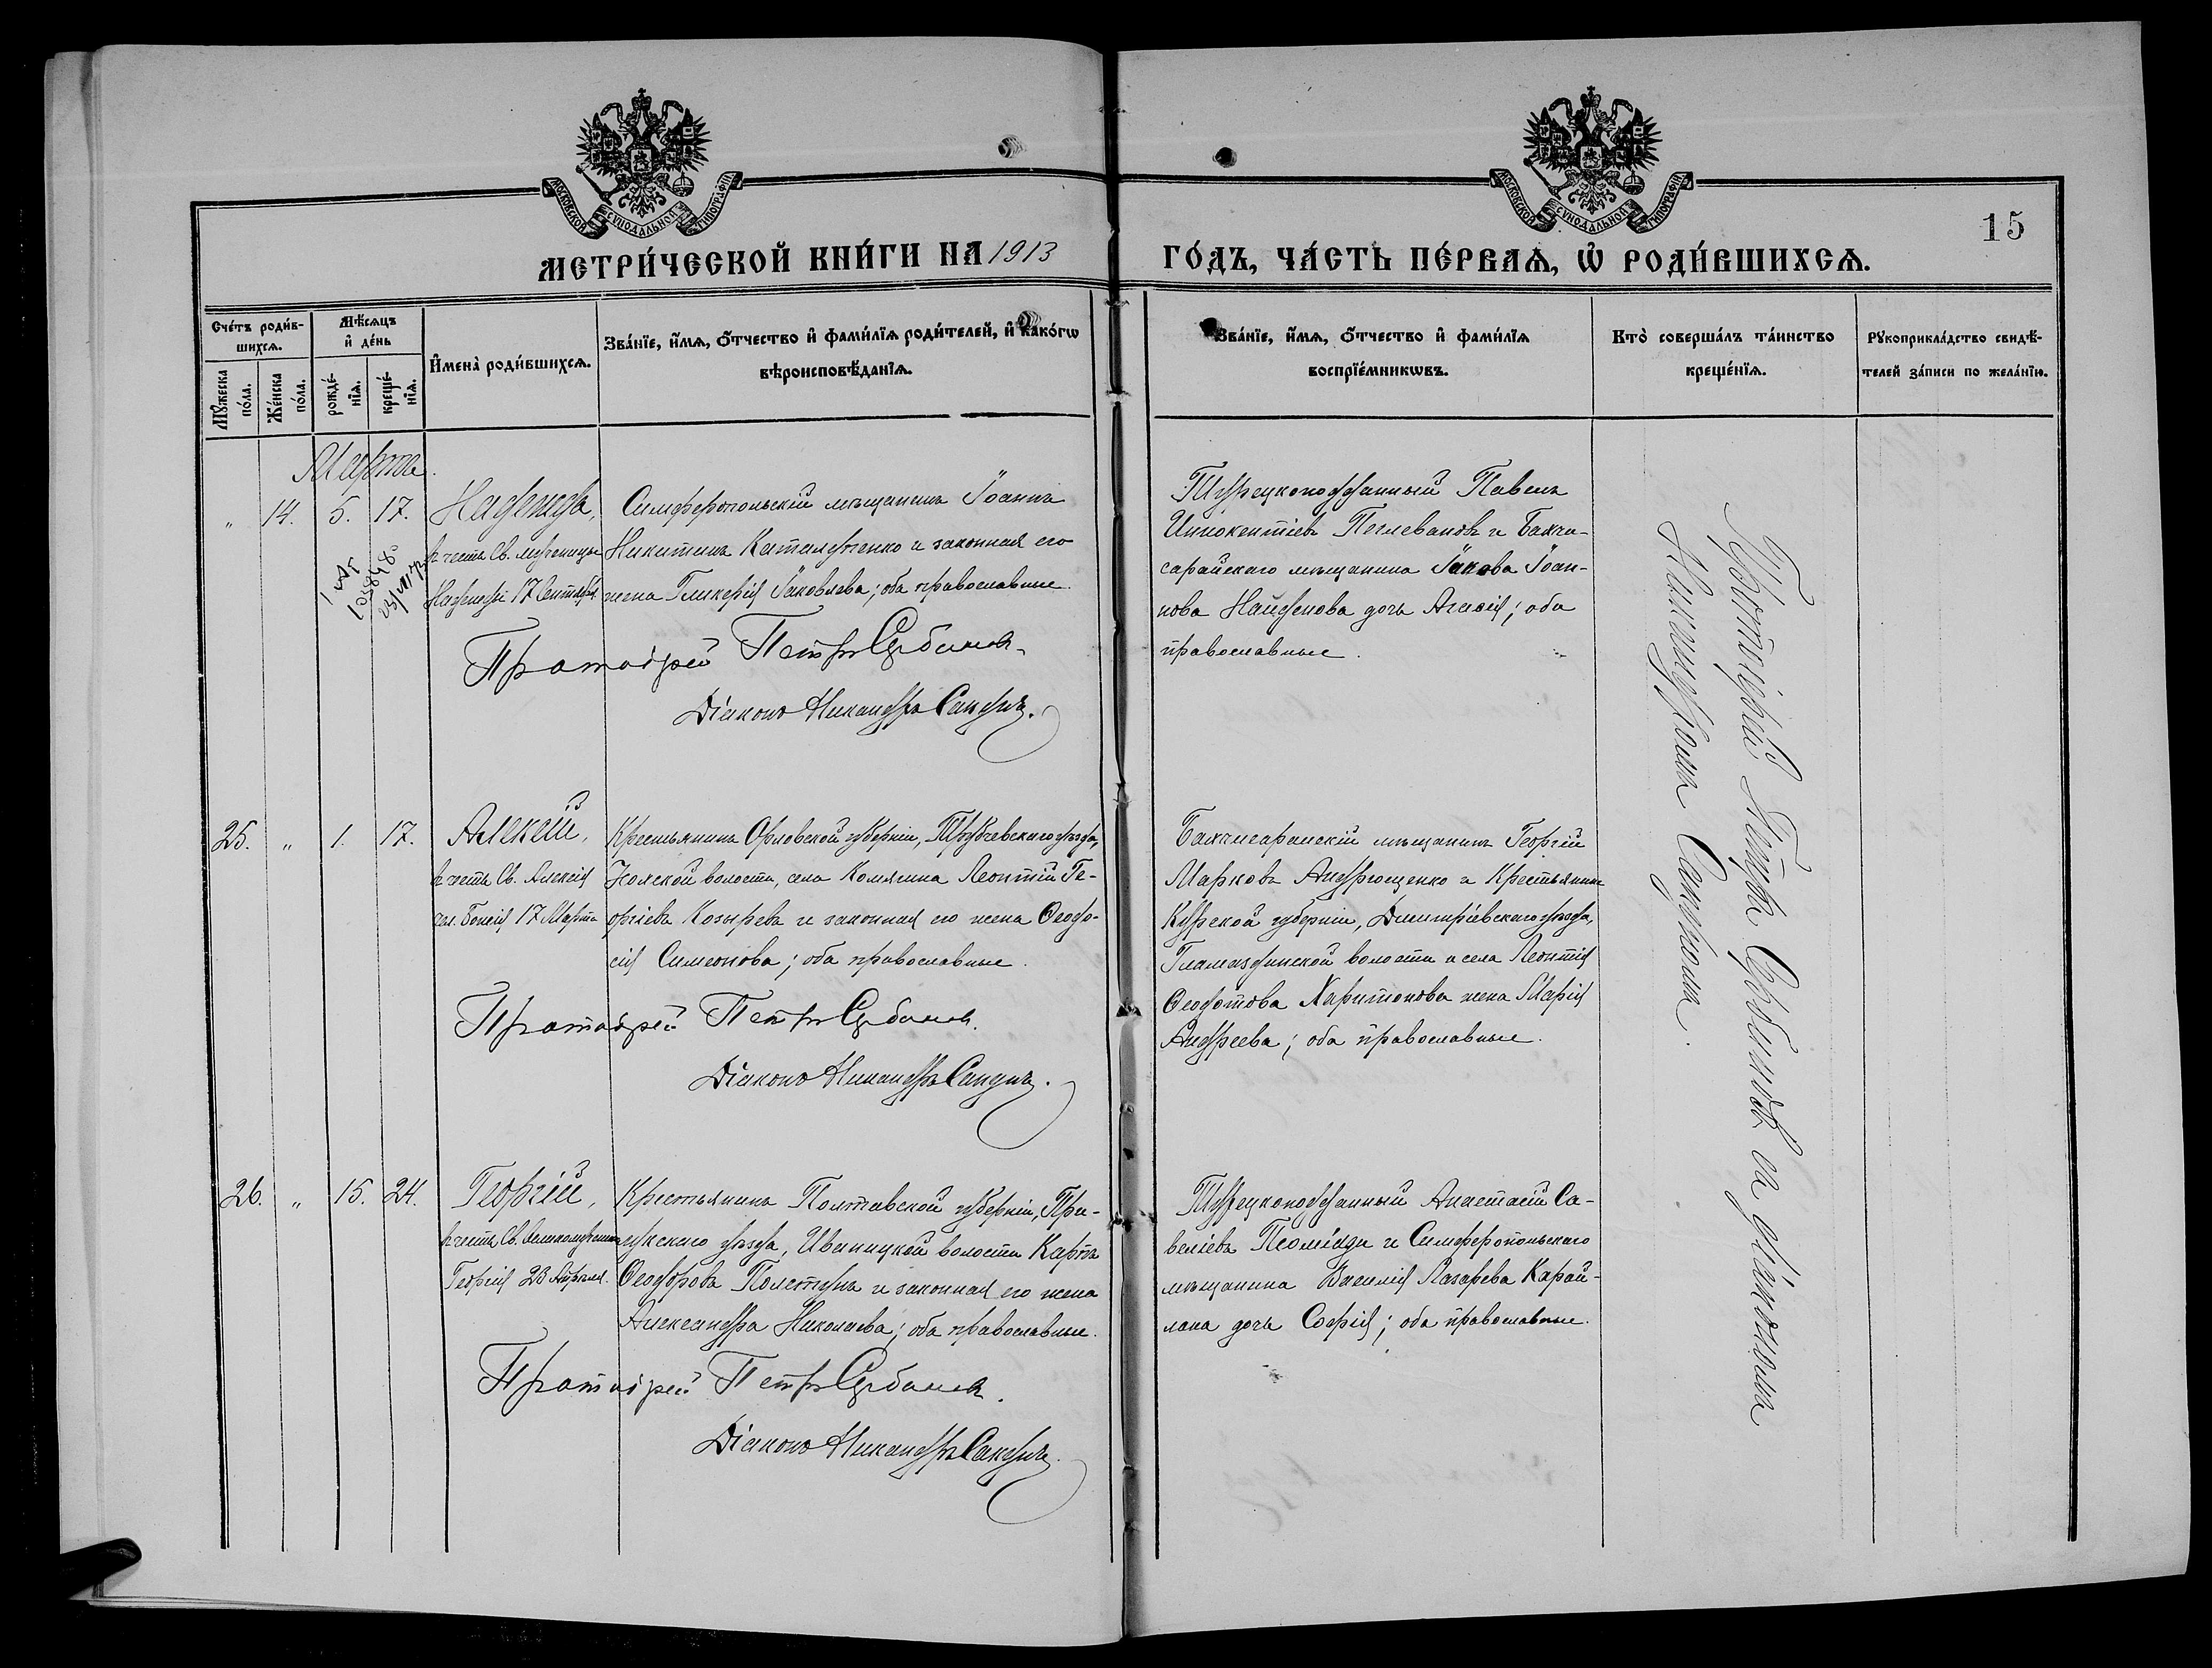 МОСКОВСКОЙ СУНОДАЛЬНОЙ ТИПОГРАФІИ
МОСКОВСКОЙ СУНОДАЛЬНОЙ ТИПОГРАФІИ
15
МЕТРИ́ЧЕСКОЙ КНИ́ГИ НА 1913
ГО́ДЪ, ЧА́СТЬ ПЕ́РВАѦ, Ѡ҆ РОДИ́ВШИХСѦ.
Сче́тъ роди́в-
шихсѧ.
Мꙋ́жеска по́ла.
Же́нска по́ла.
Мѣ́сѧцъ
и҆ де́нь
рожде́-
нїѧ.
креще́-
нїѧ.
И҆мена̀ роди́вшихсѧ.
Зва́нїе, и҆́мѧ, ѻ҆́тчество и҆ фами́лїѧ роди́телей, и҆ како́гѡ
вѣроисповѣ́данїѧ.
Зва́нїе, и҆́мѧ, ѻ҆́тчество и҆ фами́лїѧ
воспрїе́мникѡвъ.
Кто̀ соверша́лъ та́инство
креще́нїѧ.
Рꙋкоприкла́дство свидѣ́-
телей за́писи по жела́нїю.
Марта.
" 14. 5. 17.
Надежда,
въ честь Св. мученицы
Надежды 17 Сентября.
Симферопольскій мѣщанинъ Іоаннъ
Никитинъ и законная его
жена Гликерія Іаковлева; оба православные.
Протоіерей Петръ Сербиновъ.
Діаконъ Никандръ Сакунъ.
Турецкоподданный Павелъ
Иннокентіевъ Пехлевановъ и Бахчи-
сарайскаго мѣщанина Іакова Іоан-
нова Найденова дочь; оба
православные.
25. " 1. 17.
Алексій,
въ честь Св. Алексія
чел. Божія 17 Марта
Крестьянинъ Орловской губерніи, Трубчевскаго уѣзда,
волости, села Комягина Леонтій Ге-
оргіевъ Козыревъ и законная его жена Ѳеодо-
сія Симеонова; оба православные.
Протоіерей Петръ Сербиновъ.
Діаконъ Никандръ Сакунъ.
Бахчисарайскій мѣщанинъ Георгій
Марковъ Андрющенко и Крестьянина
Курской губерніи, Димитріевскаго уѣзда,
Гламаздинской волости и села Леонтія
Ѳеодотова Харитонова жена Марія
Андреева; оба православные.
26. " 15. 24.
Георгій,
въ честь Св. великомученика
Георгія 23 Апрѣля.
Крестьянинъ Полтавской губерніи, При-
лукскаго уѣзда, Иваницкой волости Карпъ
Ѳеодоровъ и законная его жена
Александра Николаева; оба православные.
Протоіерей Петръ Сербиновъ.
Діаконъ Никандръ Сакунъ.
Турецкоподданный Анастасій Са-
веліевъ и Симферопольскаго
мѣщанина Василія Лазарева Карай-
лана дочь Софія; оба православные.
Протоіерей Петръ Сербиновъ съ діакономъ
Никандромъ Сакуномъ.